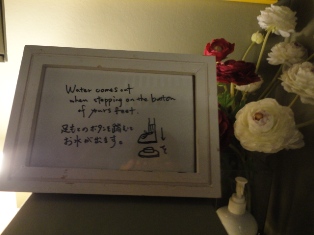 Water comes out
when stepping on the botton
of yours feet.
足もとのボタンを踏むと
お水が出ます。